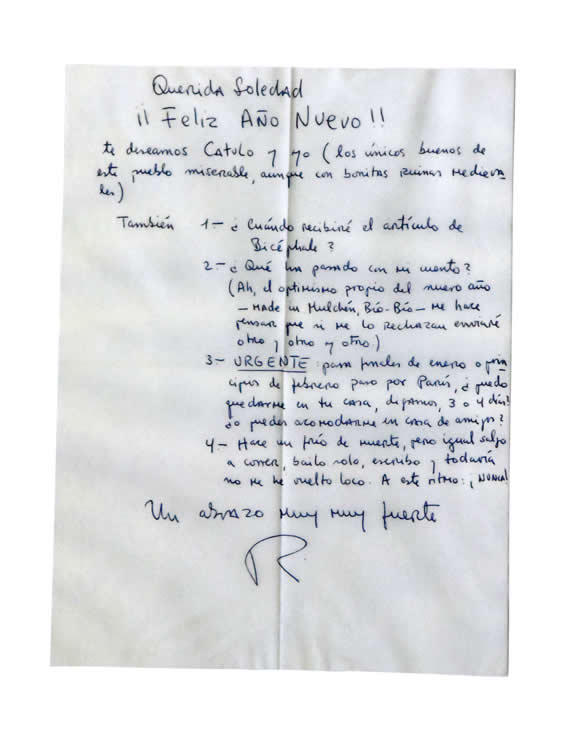 Querida Soledad
¡¡ Feliz Año Nuevo !!
te deseamos Catulo y yo (los únicos buenos de
este pueblo miserable, aunque con bonitas ruinas medieva
les)
También 1.- ¿Cuándo recibiré el artículo de
Bicéphale?
2.- ¿Qué ha pasado con mi cuento?
(Ah, el optimismo propio del nuevo año
— made in Mulchén, Bío-Bío — me hace
pensar que si me lo rechazan enviaré
otro y otro y otro.)
3.- URGENTE: para finales de enero o prin
cipios de febrero paso por París, ¿puedo
quedarme en tu casa, digamos, 3 o 4 días?
¿o puedes acomodarme en casa de amigos?
4.- Hace un frío de muerte, pero igual salgo
a correr, bailo solo, escribo y todavía
no me he vuelto loco. A este ritmo: ¡NUNCA!
Un abrazo muy muy fuerte
R.